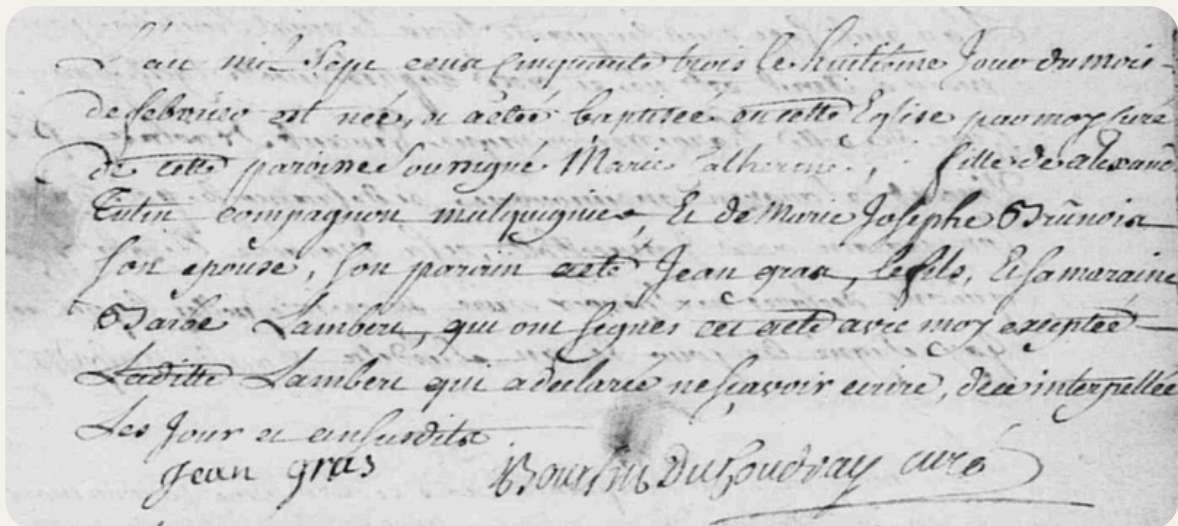 L'an mil Sept cens Cinquante trois le huitiême Jour du mois
de febvrier est née, a actée baptisée en cette Eglise par moy Curé
de cette paroisse Soussigné Marie Catherine, fille de Alexandre
Tutin compagnon mulquignier, Et de Marie Josephe Brûnois
Son epouse, Son parain aeté Jean gras, le fils, Et Sa maraine
Barbe Lambert, qui ont Signés cet acte avec moy exceptée
Laditte Lambert qui a declarée ne Sçavoir ecrire, de ce interpellée
Les Jour et an Susdits
Jean gras
Boursin Du Coudray curé